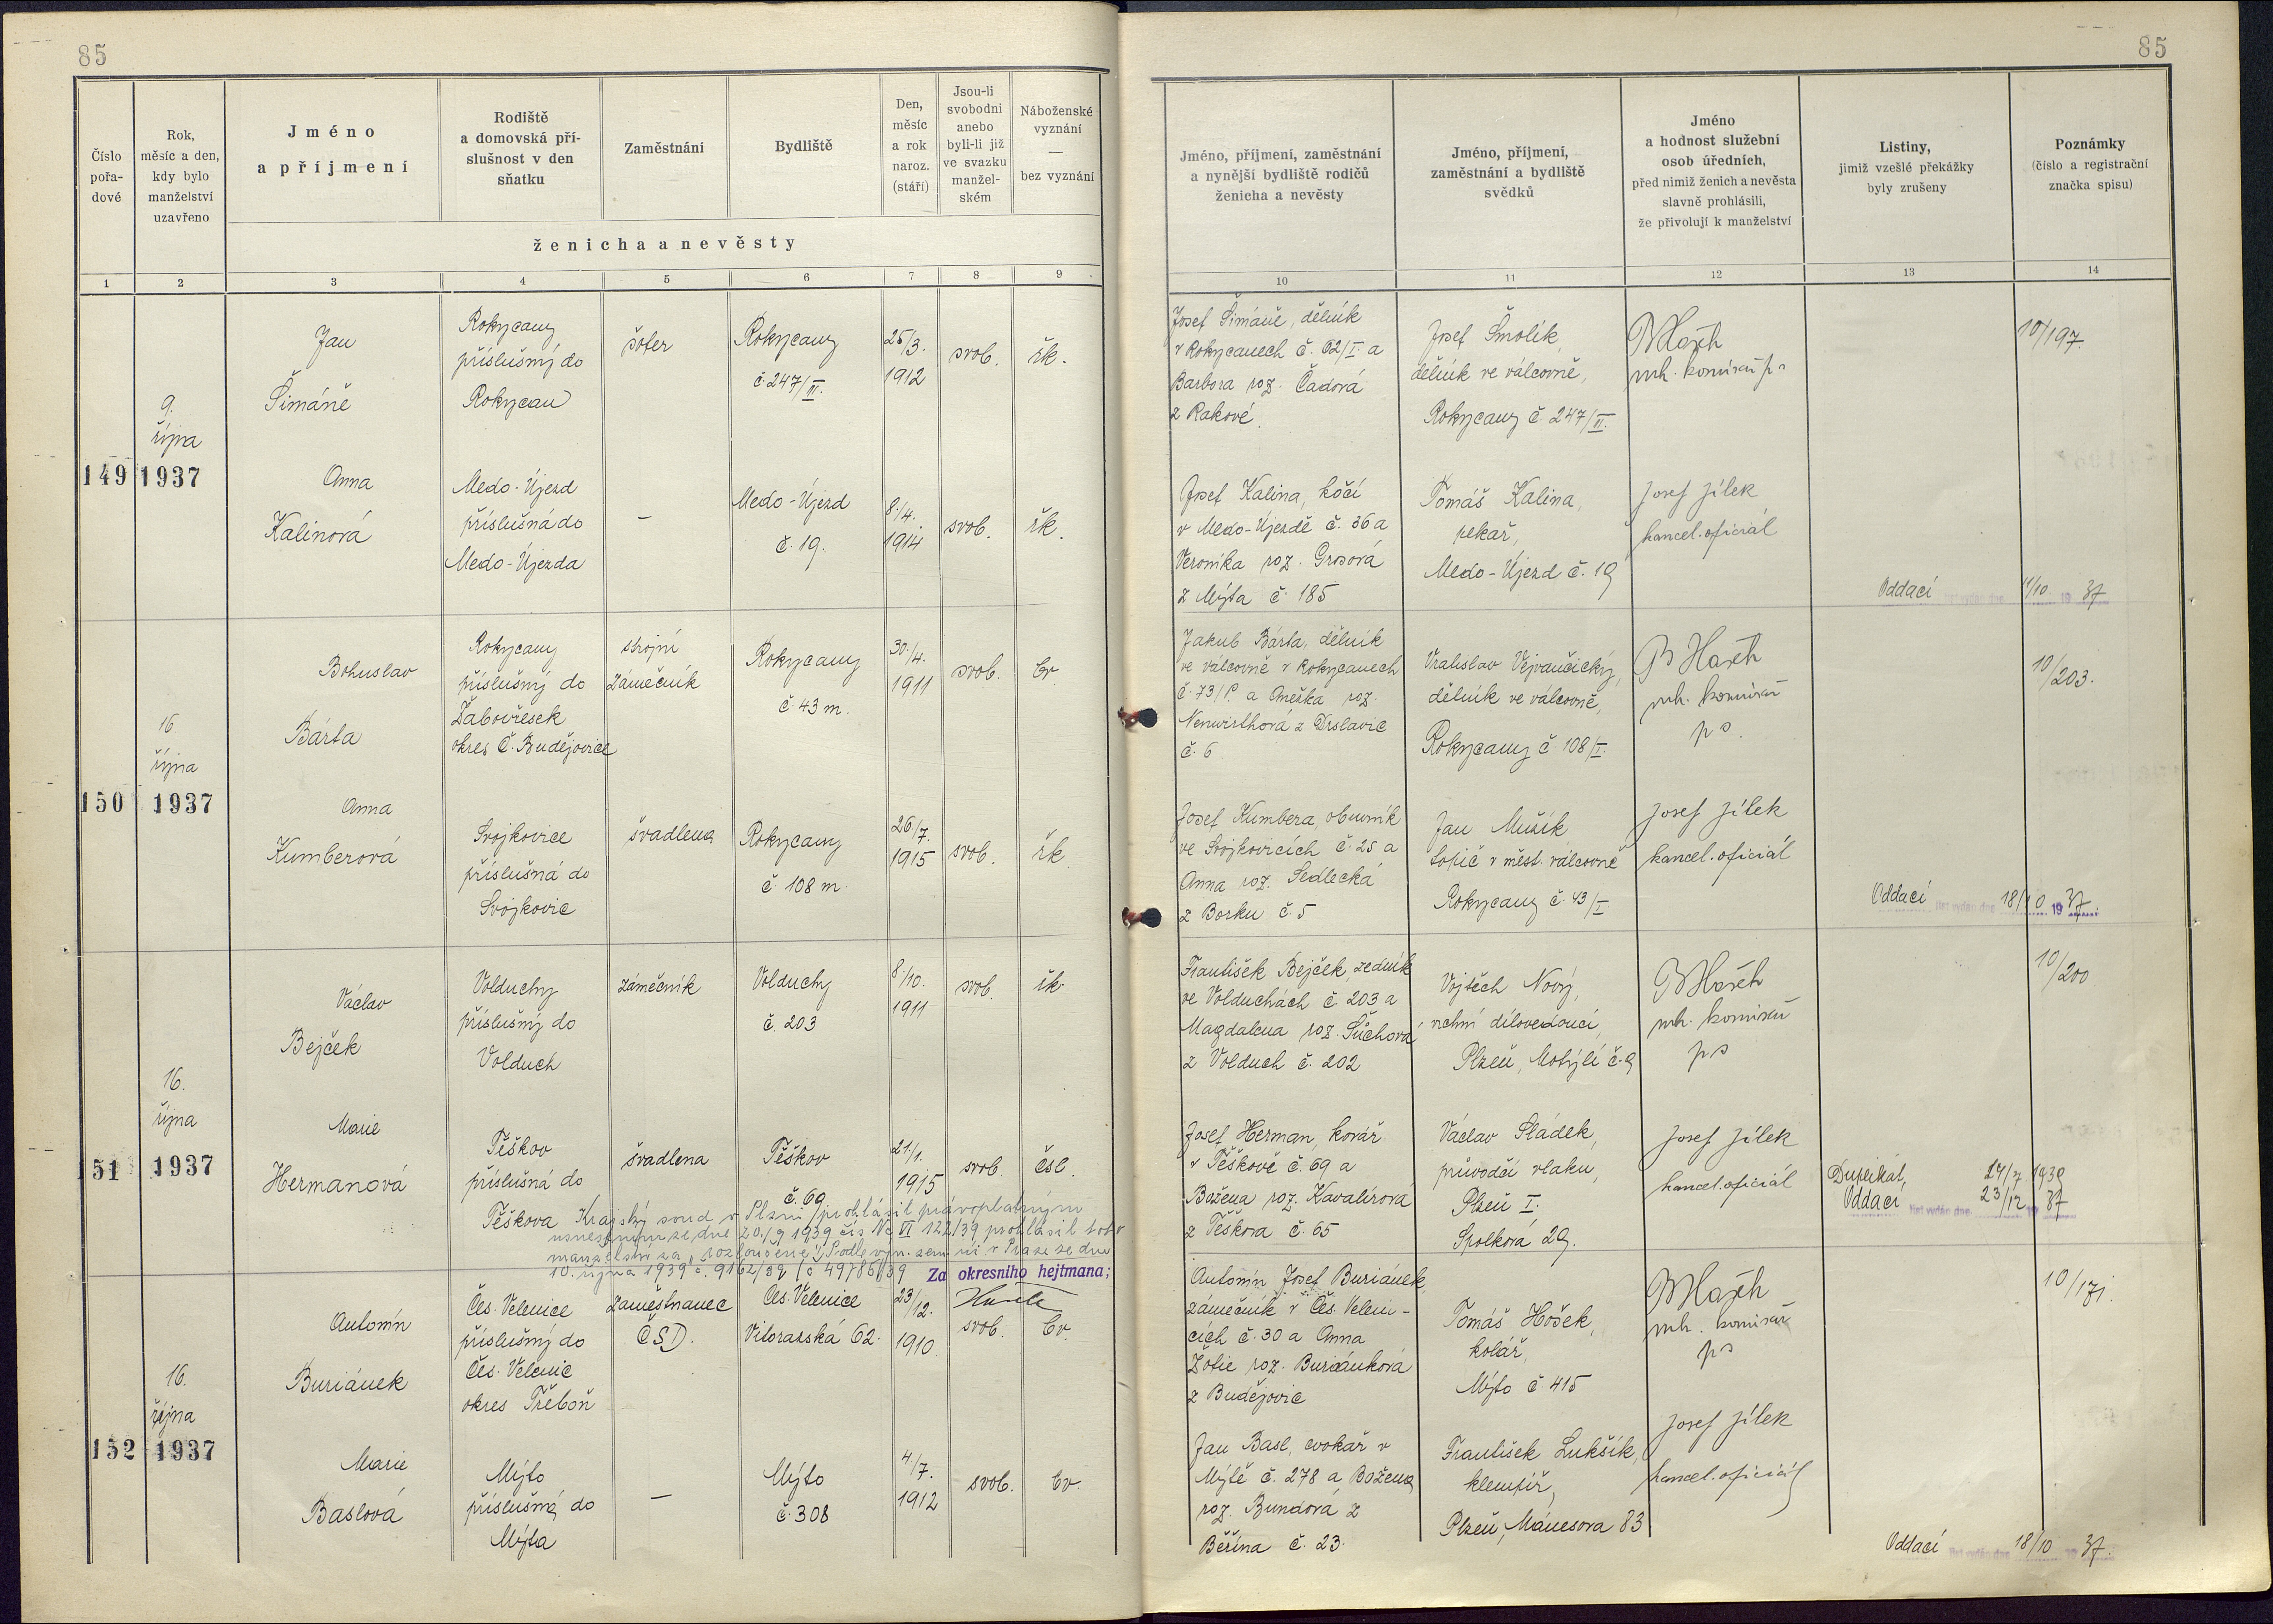 85
85
Číslo
pořa-
dové
Rok,
měsíc a den,
kdy bylo
manželství
uzavřeno
Jméno
a příjmení
Rodiště
a domovská pří-
slušnost v den
sňatku
Zaměstnání
Bydliště
Den,
měsíc
a rok
naroz.
(stáří)
Jsou-li
svobodni
anebo
byli-li již
ve svazku
manžel-
ském
Náboženské
vyznání
—
bez vyznání
ženicha a nevěsty
Jméno, příjmení, zaměstnání
a nynější bydliště rodičů
ženicha a nevěsty
Jméno, příjmení,
zaměstnání a bydliště
svědků
Jméno
a hodnost služební
osob úředních,
před nimiž ženich a nevěsta
slavně prohlásili,
že přivolují k manželství
Listiny,
jimiž vzešlé překážky
byly zrušeny
Poznámky
(číslo a registrační
značka spisu)
1 2 3 4 5 6 7 8 9 10 11 12 13 14
149
9.
října
1937
Jan
Šimáně
Rokycany
příslušný do
Rokycan
šofer
Rokycany
č. 247/III.
25/3.
1912
svob.
řk.
Josef Šimáně, dělník
v Rokycanech č. 62/I. a
Barbora roz. Čadová
z Rakové.
Josef Smolík,
dělník ve válcovně,
Rokycany č 247/III.
10/197.
Anna
Kalinová
Medo-Újezd
příslušná do
Medo-Újezda
—
Medo-Újezd
č. 19.
8./4.
1914
svob.
řk.
Josef Kalina, kočí
v Medo-Újezdě č. 36 a
Veronika roz. Grosová
z Mýta č. 185
Tomáš Kalina,
pekař,
Medo-Újezd č. 19
Josef Jílek
kancel. oficiál
Oddací list vydán dne 11/10. 19 37
150
16
října
1937
Bohuslav
Bárta
Rokycany
příslušný do
Žabovřesek
okres Č. Budějovice
strojní
zámečník
Rokycany
č. 43 m.
30./4.
1911
svob.
bv
Jakub Bárta, dělník
ve válcovně v Rokycanech
č. 73/P. a Anežka roz.
Neuwirthová z Drslavic
č. 6
Vratislav Vejvančický,
dělník ve válcovně,
Rokycany č. 108/I.
10/203.
Anna
Kumberová
Svojkovice
příslušná do
Svojkovic
švadlena
Rokycany
č. 108 m.
26./7.
1915
svob.
řk.
Josef Kumbera, obuvník
ve Svojkovicích č. 25 a
Anna roz. Sedlecká
z Borku č. 5
Jan Mužík
topič v měst. válcovně
Rokycany č. 43/I
Josef Jílek
kancel. oficiál
Oddací list vydán dne 18/10 19 37.
151
16.
října
1937
Václav
Bejček
Volduchy
příslušný do
Volduch
zámečník
Volduchy
č. 203
8./10.
1911
svob.
řk.
František Bejček, zedník
ve Volduchách č. 203 a
Magdalena roz. Šůchová
z Volduch č. 202
Vojtěch Nový,
vrchní dílovedoucí,
Plzeň, Motýlí č. 9
10/200
Marie
Hermanová
Těškov
příslušná do
Těškova
švadlena
Těškov
č. 69
21/1.
1915
svob.
čsl.
Josef Herman, kovář
v Těškově č. 69 a
Božena roz. Kavalírová
z Těškova č. 65
Václav Sládek,
průvodčí vlaku,
Plzeň I.
Spolková 29.
Josef Jílek
kancel. oficiál
Duplikát, 24/7 1939
Oddací list vydán dne 23/12 19 37
Krajský soud v Plzni prohlásil právoplatným
usnesením ze dne 20./9 1939 čís Nc VI 122/39 prohlásil toto
manželství za „rozloučené“ Podle výn. zem. úř. v Praze ze dne
10. října 1939 č. 9162/39 (č 49786/39
Za okresního hejtmana:
152
16.
října
1937
Antonín
Buriánek
Čes. Velenice
příslušný do
Čes. Velenic
okres Třeboň
zaměstnanec
ČSD.
Čes. Velenice
Vitorazská 62.
23/12.
1910
svob.
bv.
Antonín Josef Buriánek,
zámečník v Čes. Veleni-
cích č. 30 a Anna
Žofie roz. Buriánková
z Budějovic
Tomáš Hošek,
kolář,
Mýto č. 415
10/171.
Marie
Baslová
Mýto
příslušná do
Mýta
—
Mýto
č. 308
4./7.
1912
svob.
bv.
Jan Basl, cvokař v
Mýtě č. 278 a Božena
roz. Bundová z
Beřína č. 23.
František Lukšík,
klempíř,
Plzeň, Mánesova 83
Josef Jílek
kancel. oficiál
Oddací list vydán dne 18/10 19 37.